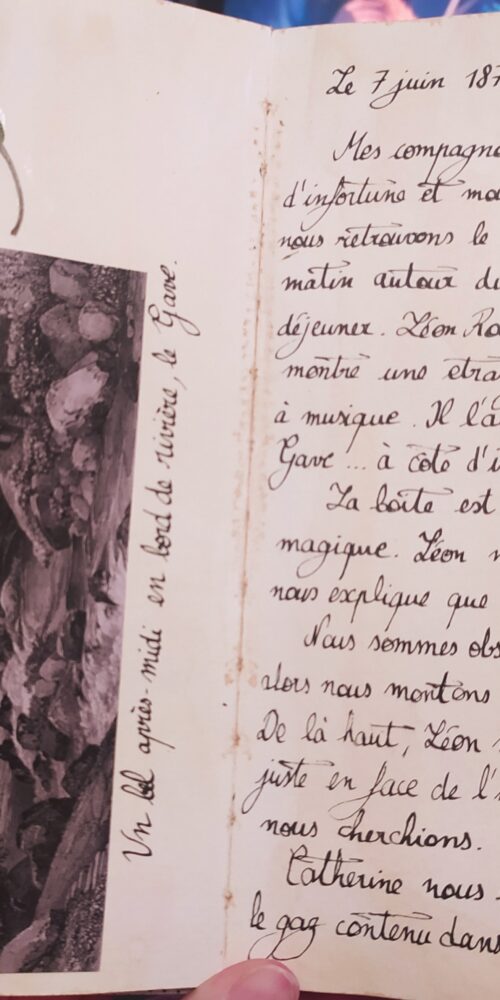 Un bel après-midi en bord de rivière, le Gave.
Le 7 juin 187
Mes compagno
d'infortune et mo
nous retrouvons le
matin autour du
déjeuner. Léon Ro
montre une etra
à musique. Il l'a
Gave ... à côté d'i
La boîte est
magique. Léon n
nous explique que
Nous sommes obs
alors nous montons
De là haut, Léon
juste en face de l'
nous cherchions.
Catherine nous
le gaz contenu dans